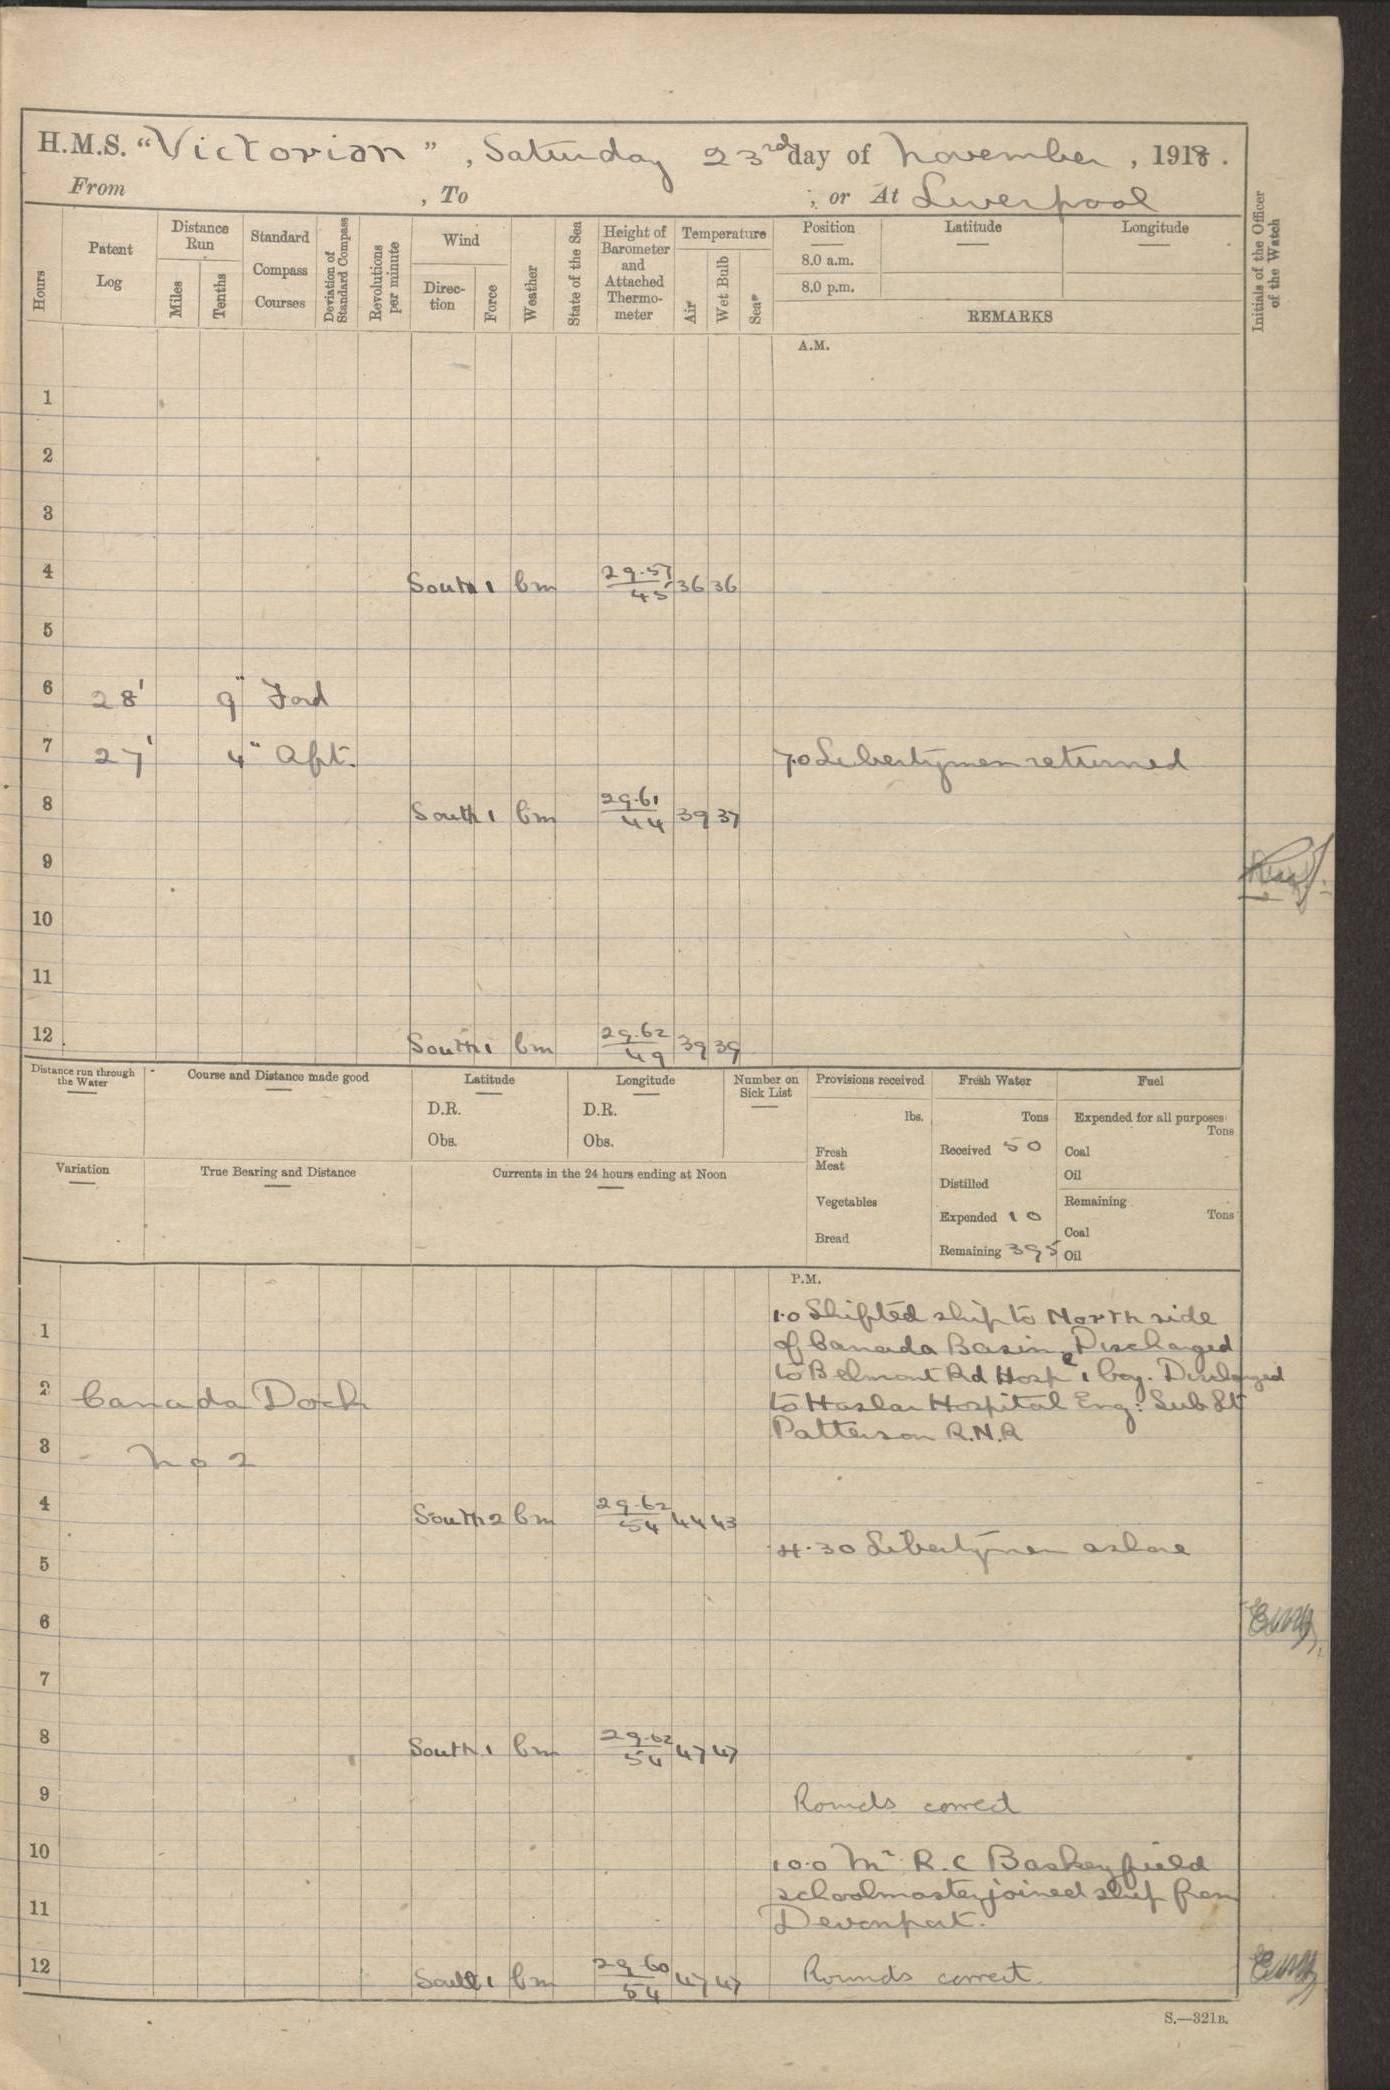 H.M.S. "Victorian", Saturday 23rd day of November, 1918.
From , To ; or At Liverpool
Hours
Patent Log
Distance Run
Miles
Tenths
Standard Compass Courses
Deviation of Standard Compass
Revolutions per minute
Wind
Direc-tion
Force
Weather
State of the Sea
Height of Barometer and Attached Thermo-meter
Temperature
Air
Wet Bulb
Sea
Position
8.0 a.m.
8.0 p.m.
Latitude
Longitude
REMARKS
Initials of the Officer of the Watch
A.M.
1
2
3
4 South 1 bm 29.57 45 36 36
5
6 28' 9" Ford
7 27' 4" Aft. 7.0 Libertymen returned
8 South 1 bm 29.61 44 39 37
9
10
11
12 South 1 bm 29.62 49 39 39
Distance run through the Water
Course and Distance made good
Latitude
D.R.
Obs.
Longitude
D.R.
Obs.
Number on Sick List
Provisions received
lbs.
Fresh Meat
Vegetables
Bread
Fresh Water
Tons
Received 50
Distilled
Expended 10
Remaining 395
Fuel
Expended for all purposes
Tons
Coal
Oil
Remaining
Tons
Coal
Oil
Variation
True Bearing and Distance
Currents in the 24 hours ending at Noon
P.M.
1.0 Shifted ship to North side
1 of Canada Basin. Discharged
to Belmont Rd Hospl 1 boy. Discharged
2 Canada Dock to Haslar Hospital Eng: Sub Lt
Patterson R.N.R
3 No 2
4 South 2 bm 29.62 54 44 43
4.30 Libertymen ashore
5
6
7
8 South 1 bm 29.62 54 47 47
9 Rounds correct
10 10.0 Mr R.C Baskeyfield
schoolmaster joined ship from
11 Devonport.
12 South 1 bm 29.60 54 47 47 Rounds correct
S.—321B.